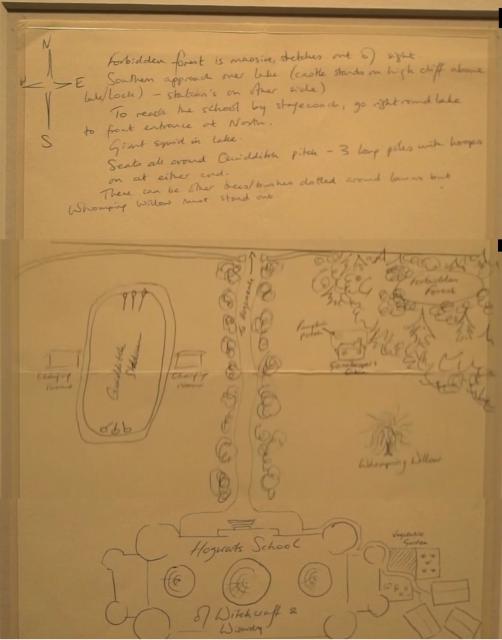 N
E
S
Forbidden forest is massive, stretches out of sight
Southern approach over lake (castle stands on high cliff above
lake/loch) - station's on other side)
To reach the school by stagecoach, go right round lake
to front entrance at North.
Giant squid in lake.
Seats all around Quidditch pitch - 3 long poles with hoops
on at either end.
There can be other trees/bushes dotted around lawns but
Whomping Willow must stand out.
To Hogsmeade
Forbidden
Forest
Pumpkin
patch
Gamekeeper's
Cabin
Quidditch
Stadium
Changing
Room
Changing
Room
Whomping Willow
Vegetable
Garden
Hogwarts School
of Witchcraft &
Wizardry